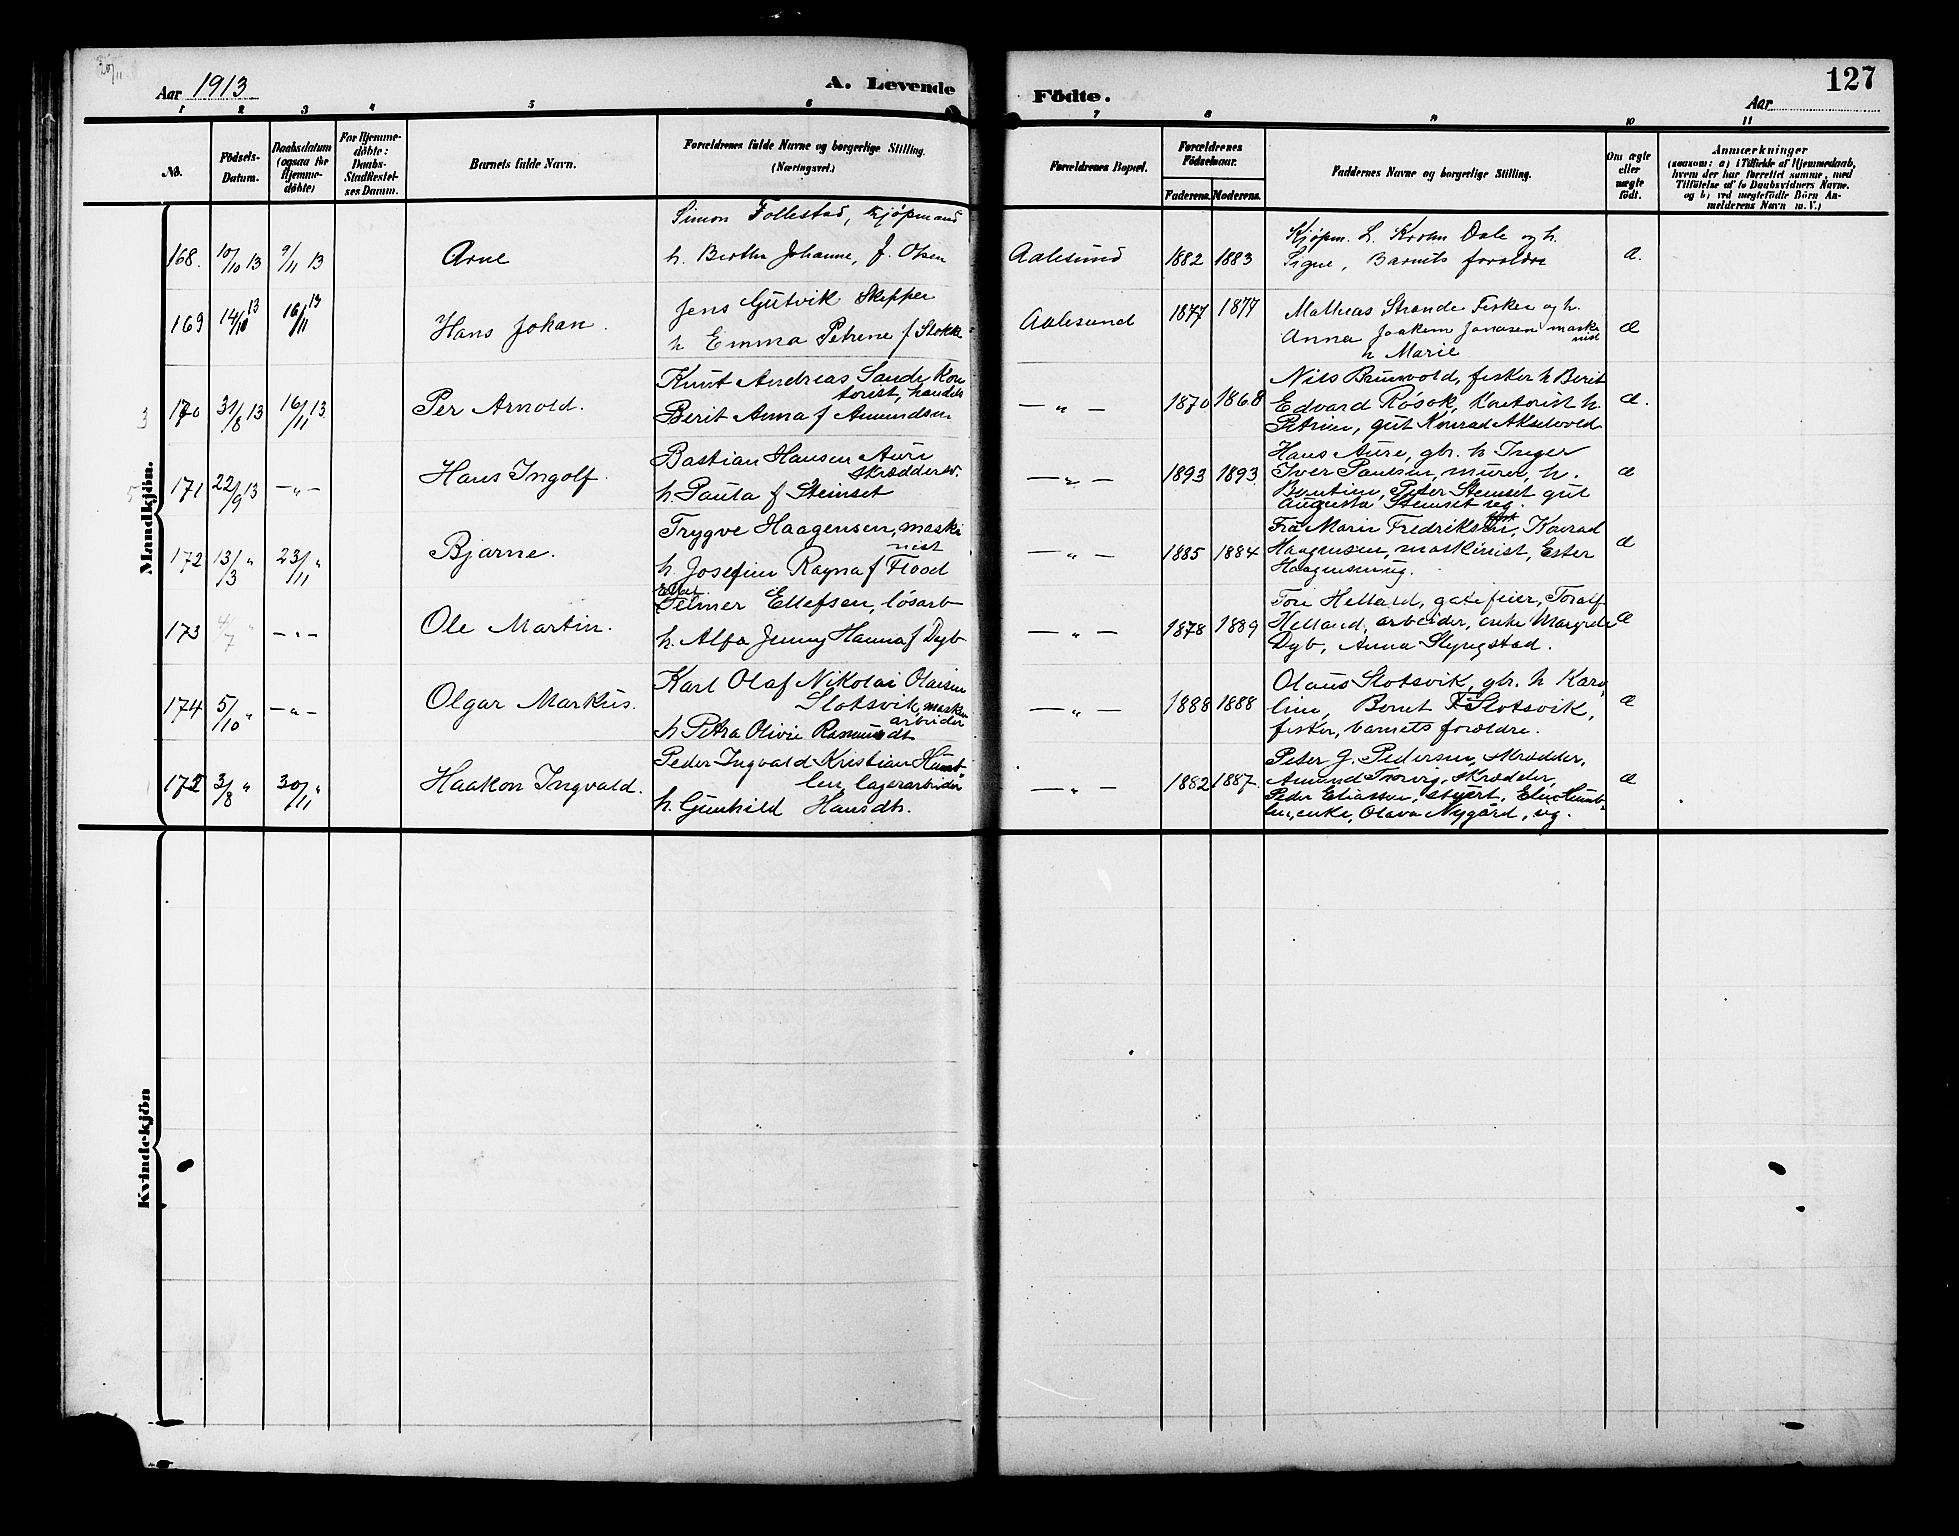 Aar 1913
A. Levende Födte.
127
Aar
1 2 3 4 5 6 7 8 9 10 11
No.
Födsels-Datum.
Daabsdatum (ogsaa for Hjemmedöbte)
For Hjemmedöbte: Daabs-Stadfæstelses Datum.
Barnets fulde Navn.
Forældrenes fulde Navne og borgerlige Stilling. (Næringsvei.)
Forældrenes Bopæl.
Forældrenes Födselsaar.
Faderens. Moderens.
Faddernes Navne og borgerlige Stilling.
Om ægte eller uægte födt.
Anmærkninger
(saasom: a) i Tilfælde af Hjemmedaab, hvem der har forrettet samme, med Tilföielse af to Daabsvidners Navne, og b) ved uægtefödte Börn Anmelderens Navn m. V.)
Mandkjön.
168. 10/10 13 9/11 13 Arne
Simon Follestad, kjøpmand
h. Berthe Johanne, f. Olsen
Aalesund 1882 1883
Kjøpm. L. Krohn Dale og h.
Signe, Barnets forældre
æ.
169 14/10 13 16/11 13 Hans Johan.
Jens Gutvik Skipper
h Emma Petrine f Stokke
Aalesund 1877 1877
Mathias Strande Fisker og h.
Anna Joakim Jonasen maskinist
h Marie
æ
170 31/8 13 16/11 13 Per Arnold.
Knut Andreas Sande, kontorist, handels
Berit Anna f Amundsen
— " — 1870 1868
Nils Brunvold, fisker h Berit
Edvard Røsok, kontorist h.
Petrine, gut Konrad Akselvold
æ.
171 22/9 13 — " — Hans Ingolf.
Bastian Hansen Aure
skræddersv.
h Paula f Steinset
— " — 1893 1893
Hans Aure, gbr. h Inger
Iver Paulsen, murer, h.
Berntine, Peter Steinset gut
Augusta Steinset ug.
æ
172 13/3 " 23/11 " Bjarne.
Trygve Haagensen, maskinist
h. Josefine Ragna f Flood
— " — 1885 1884
Fru Marie Fredriksen, Konrad
Haagensen, maskinist, Ester
Haagensen ug.
æ
173 4/7 " — " — Ole Martin.
Elmer Ellefsen, løsarb
h. Alfa Jenny Hanna f Dyb
— " — 1878 1889
Tore Helland, gatefeier, Toralf
Helland, arbeider, enke Margrete
Dyb, Anna Slyngstad.
æ
174 5/10 " — " — Olgar Markus.
Karl Olaf Nikolai Olaisen
Slotsvik, maskin
arbeider
h Petra Olivie Rasmusdt
— " — 1888 1888
Olaus Slotsvik, gbr. h Karo-
line, Bernt Slotsvik,
fisker, barnets forældre.
æ
172 3/8 " 30/11 " Haakon Ingvald.
Peder Ingvald Kristian Humb-
len, lagerarbeider
h. Gunhild Hansdt.
— " — 1882 1887.
Peter J. Pedersen, skrædder,
Amund Tversvig, skrædder,
Peder Eliassen, styert, Eline Humb-
len, enke, Olava Nygård, ug.
æ
Kvindekjön